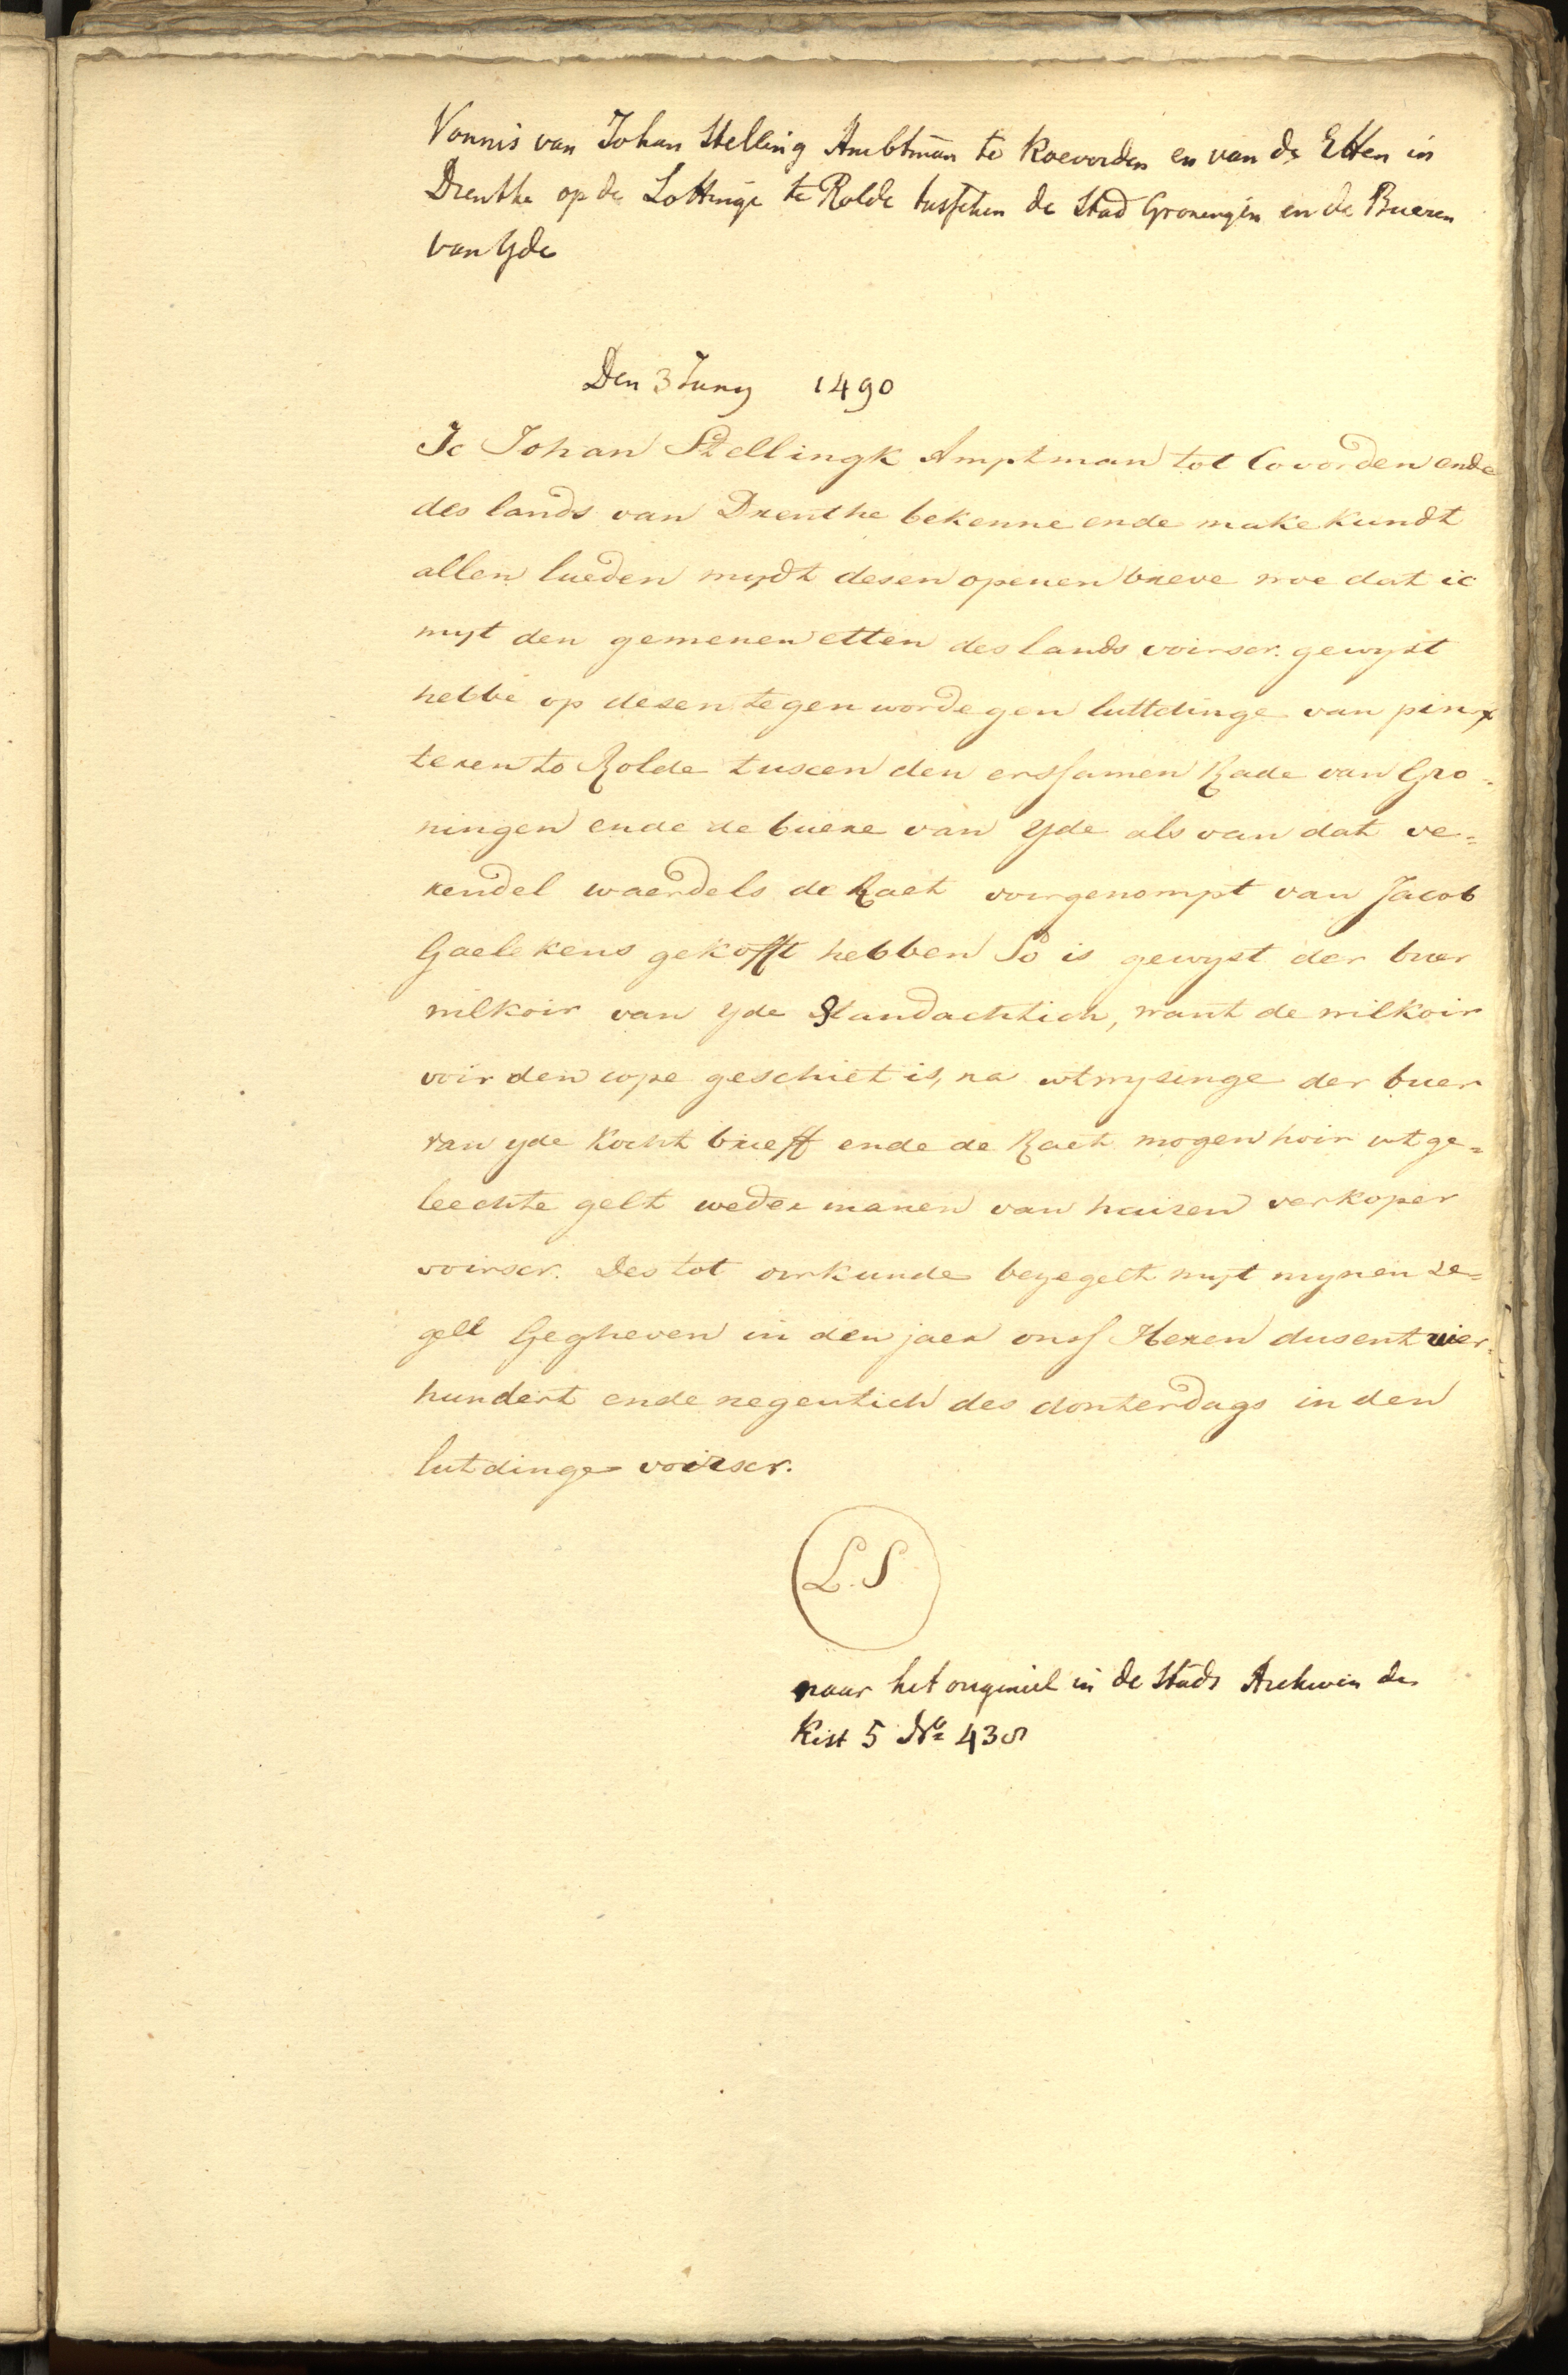 Vonnis van Johan Stelling Ambtman te Koevorden en van de Etten in
Drenthe op de Lottinge te Rolde tusschen de Stad Groningen en de Bueren
van Yde
Den 3 Juny 1490
Ic Johan Stellingk Amptman tot Covorden ende
des lands van Drenthe bekenne ende make kundt
allen lueden mydt desen openen breve woe dat ic
myt den gemenen etten des lands voirscr. gewyst
hebbe op desen tegenwordegen luttdinge van pinx
teren to Rolde tuscen den erssamen Rade van Gro-
ningen ende de buere van Yde als van dat ve=
rendel waerdels de Raet voirgenompt van Jacob
Gaelekens gekofft hebben So is gewyst der buer
wilkoir van yde Standachtich, want de wilkoir
voir den cope geschiet is, na utwysinge der buer
van yde kocht brieff ende de Raet mogen hoir utge=
leechte gelt weder manen van hairen verkoper
voirscr. Des tot oirkunde bezegelt myt mynen ze=
gell Gegheven in den jaer onss Heren dusent vier-
hundert ende negentich des donterdags in den
lutdinge voirscr.
L.S.
naar het origineel in de Stads Archiven de
Kist 5 No 438